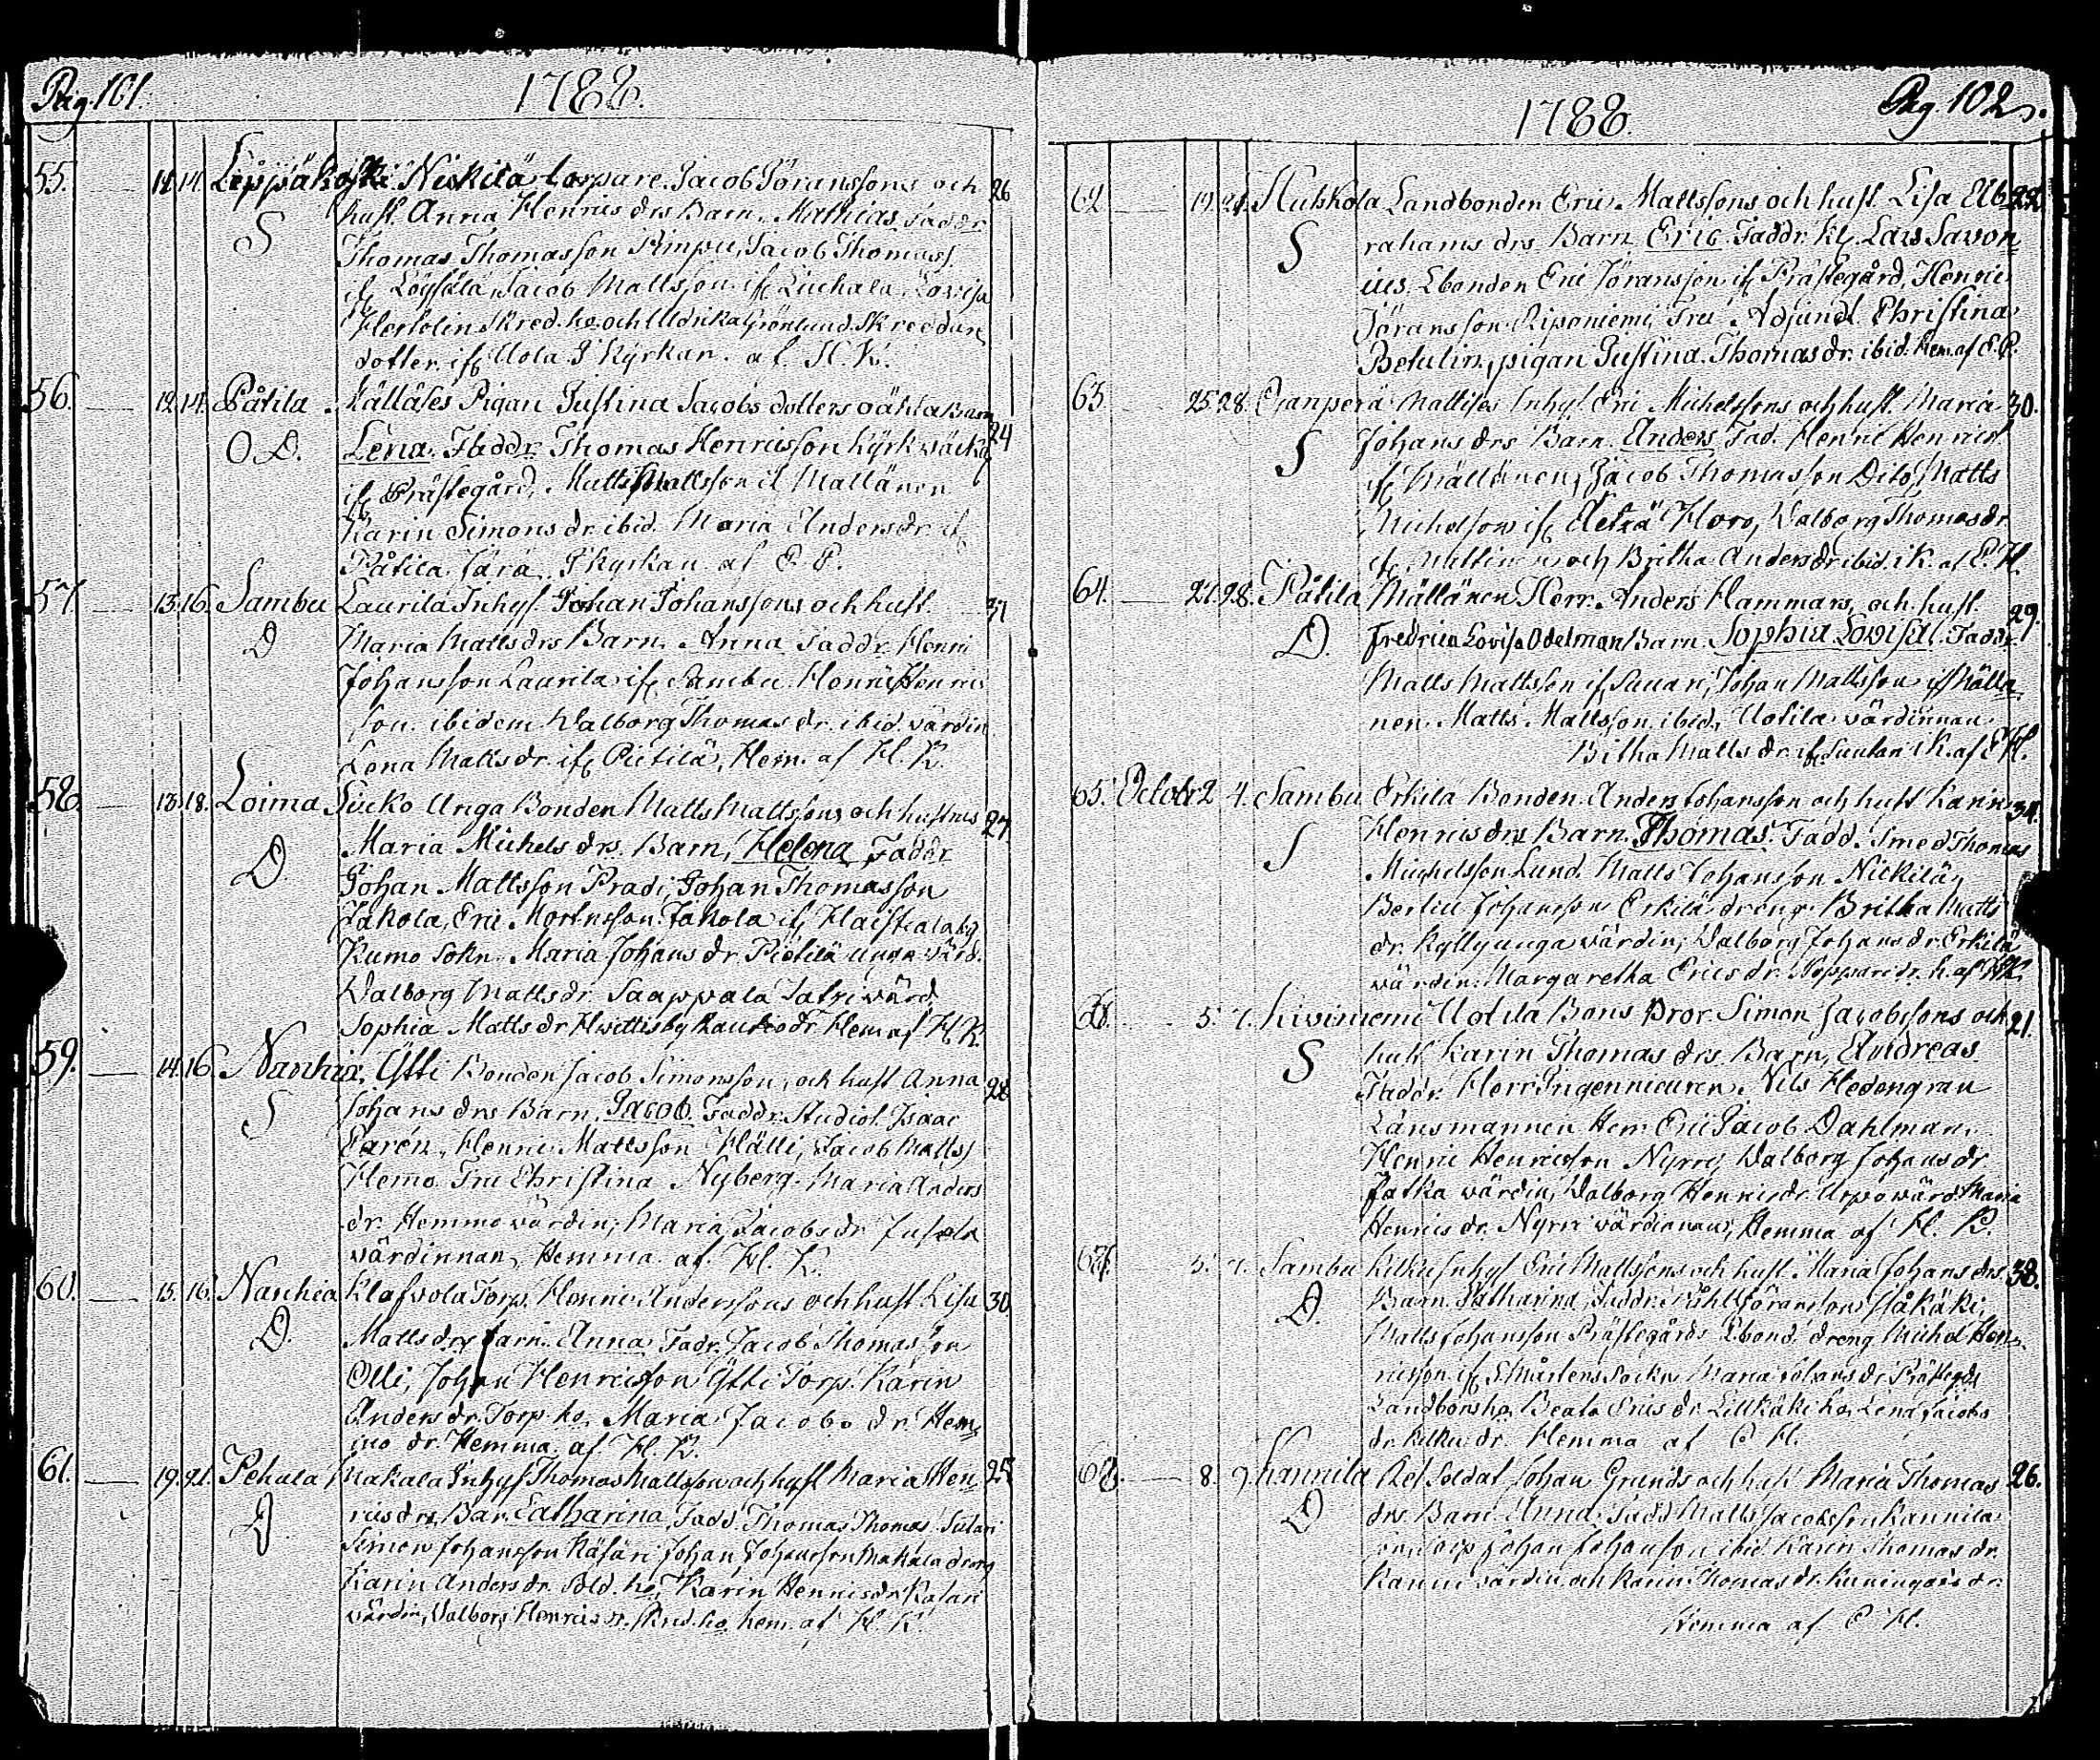 Pag. 101.
1788.
55. 12. 14. Leppäkoski Nickilä torpare Jacob Göranssons och 26
S hust. Anna Henrics drs Barn. Mathias Faddr
Thomas Thomasson Pimpu, Jacob Thomass
if Löysälä, Jacob Mattsson if Luchala, Lovisa
skred. ho. och Uldrika Grönlund Skreddare
dotter if Uola I Kyrkan. af H. K.
56. 12. 14. Påtila Källäses Pigan Justina Jacobs dotters oäkta Barn 24
O D. Lena. Faddr Thomas Henricsson Kyrkväck.
if Prästegård, Matts Mattsson if Mällänen
Karin Simons dr. ibid. Maria Anders dr if
Påtila I kyrkan af E. P.
57 13. 16. Sambu Laurila Inhys. Johan Johanssons och hust. 37
D Maria Matts drs Barn. Anna Faddr. Henric
Johansson Laurila if Sambu Henric Henrics
son ibidem Walborg Thomas dr. ibid. värdin
Lena Matts dr. if Pietilä, Hem. af H. K.
58. 13. 18. Loima Sucko Unga Bonden Matts Mattssons och hustrus 27.
D. Maria Michels drs. Barn, Helena Faddr
Johan Mattsson Pradi, Johan Thomasson
Jakola, Eric Mortensson Jakola if
Kumo Sokn. Maria Johans dr. Pietilä unga värd.
Walborg Matts dr. Saappala värd,
Sophia Matts dr Hvittisby Hem af H. K.
59. 14. 16. Nanhia, Ytti Bonden Jacob Simonsson, och hust Anna 28
S Johans drs Barn. Jacob. Faddr. Studios. Isaac
Henric Mattsson Hälli, Jacob Mattss
Hemmo Fru Christina Nyberg. Maria Anders
dr. Hemmo värdin, Maria Jacobs dr
värdinnan, Hemma. af. H. K.
60. 15. 16. Nanhia Torp. Henric Anderssons och hust Lisa 30
D. Matts drs barn. Anna Fadr. Jacob Thomasson
Olli, Johan Henricsson Ytti Torp. Karin
Anders dr. Torp ho. Maria Jacobs dr. Hem
mo dr. Hemma. af H. K.
61. 19. 21. Pehula Makala Inhys Thomas Mattsson och hust Maria Hen 25
D rics drs Bar. Catharina, Fadd. Thomas Thomas
Simon Johansson Käsäri, Johan Johansson Makala dreng
Karin Anders dr. Sold. ho, Karin Henrics dr
värdin, Walborg Henrics dr. ho. hem. af H. K.
Pag. 102.
1788.
62 19. 21. Landbonden Eric Mattssons och hust. Lisa Ab 22
S rahams drs Barn Eric. Faddr. Kl. Lars Savon
ius, Lbonden Eric Göransson if Prästegård, Henric
Jöransson Riponiemi, Fru Adjunct Christina
Betulin, pigan Justina Thomas dr. ibid. Hem. af E. P.
63 25. 28. Mattises Inhys. Eric Michelssons och hust. Maria 30.
S Johans drs Barn. Anders Fad. Henric Henricss
if Mällänen, Jacob Thomasson Dito, Matts
Michelsson if Horo, Walborg Thomas dr
if och Britha Anders dr ibid. i K. af
64. 27. 28. Påtila Mällänen Herr. Anders Hammars, och hust. 29.
D. Fredrica Lovisa Odelman Barn. Sophia Lovisa. Faddr.
Matts Mattsson if Johan Mattsson if Mällä
nen Matts Mattsson ibid. Uotila värdinnan
Britha Matts dr. if i K. af
65. Octobr 2 4. Sambu Erkilä Bonden Anders Johansson och hust Karin 34.
S Henrics drs Barn. Thomas. Fadd. Smed Thomas
Michelsson Lund. Matts Johansson Nickilä,
Bertill Johansson Erkilä dreng. Britha Matts
dr. unga värdin; Walborg Johans dr Erkilä
värdin. Margaretha Erics dr. h. af HK.
66. 5. 7. Kiviniemi Uotila Bons Bror. Simon Jacobssons och 21.
S hust. Karin Thomas drs. Barn, Andreas
Faddr. Herr Ingenieuren Nils Hedengran
Länsmannen Herr Eric Jacob Dahlman,
Henric Henricsson Nyrry Walborg Johans dr
värdin, Walborg Henrics dr. värd. Maria
Henrics dr. värdinnan, Hemma af H. K.
67. 5. 7. Sambu Inhys Eric Mattssons och hust Maria Johans drs 38.
D. Barn Catharina, Faddr. Jöransson
Matts Johansson Prästegårds Lbond. dreng Michel Hen
ricsson if S. Mårtens Sockn Maria Johans dr
Landbons ho Beata Erics dr. Lena Jacobs
dr. dr. Hemma af
68. 8. 9. Kannila Soldat Johan Grunds och hust Maria Thomas 26.
D drs. Barn Anna Fadd Matts Jacobsson Kannila
Johan Johansson ibid. Karin Thomas dr.
värdin och Karin Thomas dr. dr.
Hemma af